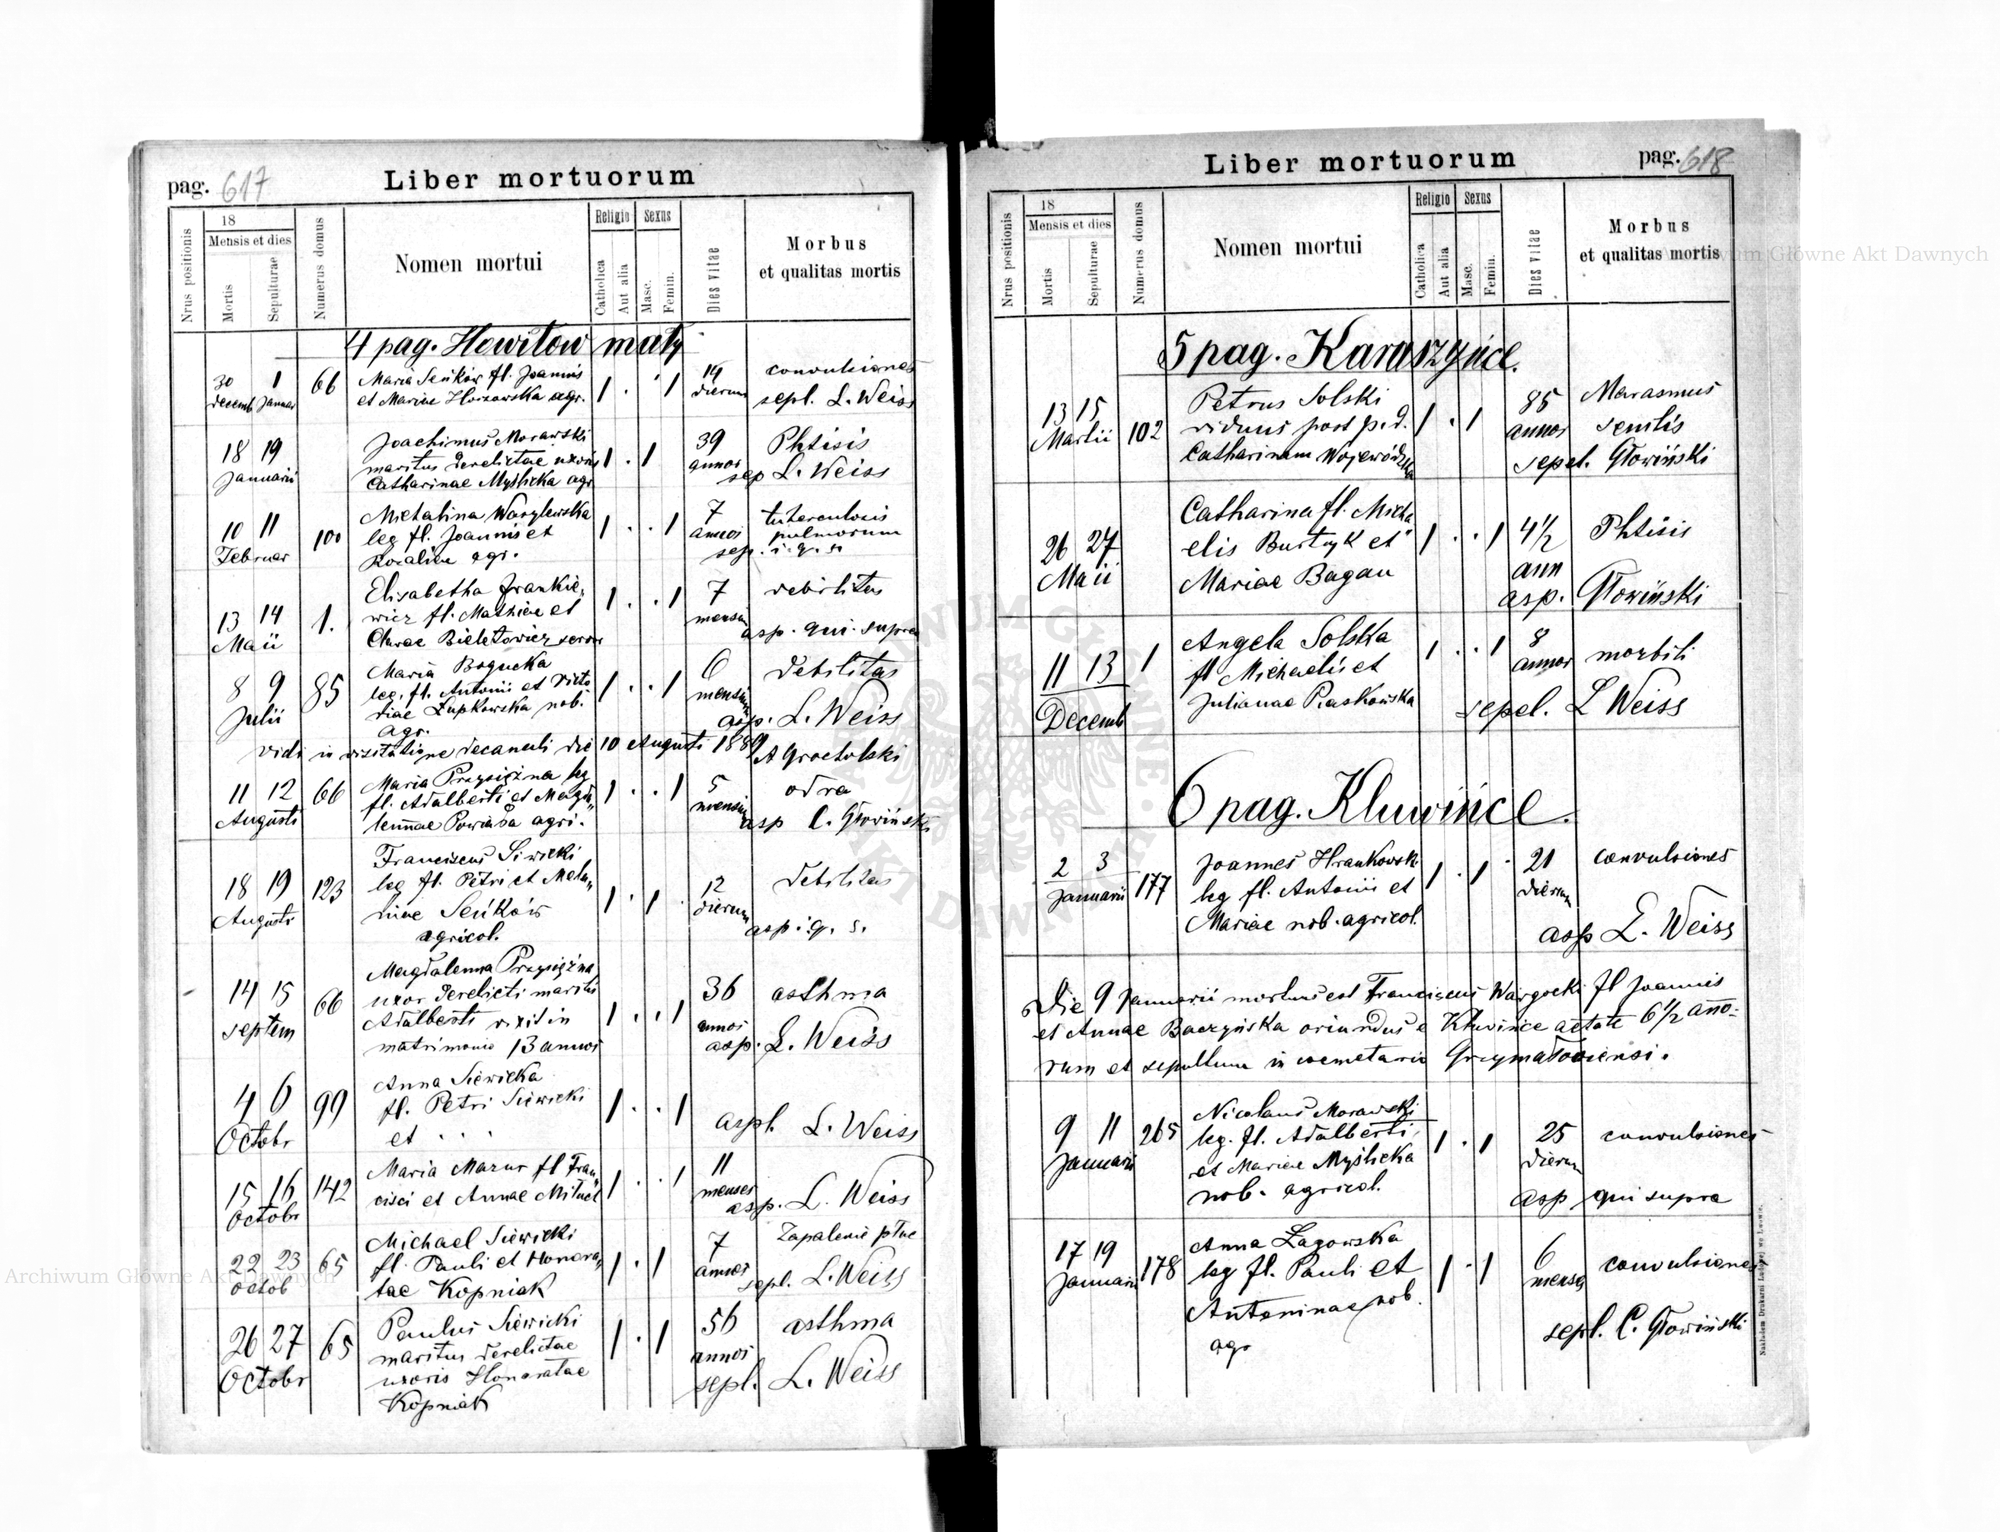 pag. 617
Liber mortuorum
Nrus positionis
18
Mensis et dies
Mortis
Sepulturae
Numerus domus
Nomen mortui
Religio
Catholica
Aut alia
Sexus
Masc.
Femin.
Dies vitae
Morbus
et qualitas mortis
4 pag. Howiłow mały
30 1 66 Maria Seńków fl. Joannis 1 . . 1 14 convulsiones
decemb Januar et Mariae agr. dierum sepl. L. Weiss
18 19 Joachimus Morawski 1 . 1 39 Phtisis
Januarii maritus derelictae uxoris annos sep L. Weiss
Catharinae Myślicka agr
10 11 100 Michalina Wasylewska 1 . . 1 7 tuberculosis
Februar leg fl. Joannis et annos pulmorum
Rozaliae agr. sep. i. q. s
13 14 1. Elisabetha Frankie- 1 . . 1 7 debilitas
Maii wicz fl. Mathiae et mensium
Clarae Bieletowicz asp. qui supra
8 9 85 Maria Bogucka 1 . . 1 6 debilitas
Julii leg. fl. Antonii et Victo mensium
riae Łupkowska nob. asp. L. Weiss
agr.
vidi in visitatione decanali die 10 Augusti 1889 A Grocholski
11 12 66 Maria Przysiężna leg 1 . . 1 5 odra
Augusti fl. Adalberti et Magda mensium
lennae agri. asp C. Głowiński
18 19 123 Franciscus Siwicki 1 . 1 . 12 debilitas
Augusti leg fl. Petri et Mela- dierum
niae Seńków asp. q. s.
agricol.
14 15 66 Magdalenna Przysiężna 1 . . 1 36 asthma
septem uxor derelicti mariti annos
Adalberti vixit in asp. L. Weiss
matrimonio 13 annos
4 6 99 Anna Siewicka 1 . . 1
Octobr fl. Petri Siewicki aspl. L. Weiss
et . . .
15 16 142 Maria Mazur fl Fran- 1 . . 1 11
Octobr cisci et Annae menses asp. L. Weiss
22 23 65 Michael Siewicki 1 . 1 7 Zapalenie płuc
octob fl. Pauli et Honora- annos sepl. L. Weiss
tae Kopniak
26 27 65 Paulus Siewicki 1 . 1 56 asthma
Octobr maritus derelictae annos
uxoris Honoratae sepl. L. Weiss
Kopniak
pag. 618
Liber mortuorum
Nrus positionis
18
Mensis et dies
Mortis
Sepulturae
Numerus domus
Nomen mortui
Religio
Catholica
Aut alia
Sexus
Masc.
Femin.
Dies vitae
Morbus
et qualitas mortis
5 pag. Karaszyńce.
13 15 102 Petrus Solski 1 . 1 85 Marasmus
Martii viduus post p. d. annos senilis
Catharinam Wojewódzka sepel. Głowiński
26 27 Catharina fl. Micha 1 . . 1 4½ Phtisis
Maii elis Burtnyk et ann
Mariae Bagan asp. Głowiński
11 13 1 Angela Solska 1 . . 1 8 morbili
Decemb fl Michaelis et annos
Julianae Piaskowska sepel. L Weiss
6 pag. Kluwińce.
2 3 177 Joannes Hrankowsk 1 . 1 . 21 convulsiones
Januarii leg fl. Antonii et dierum
Mariae nob. agricol. asp L. Weiss
Die 9 Januarii mortuus est Franciscus Wargocki fl Joannis
et Annae Baczyńska oriundus e Kluwińce aetate 6½ anno-
rum et sepultum in coemetario Grzymałoviensi.
9 11 265 Nicolaus Morawski 1 . 1 25 convulsiones
Januarii leg. fl. Adalberti dierum
et Mariae Myślicka
nob. agricol. asp qui supra
17 19 178 Anna Łagowska 1 . 1 6 convulsiones
Januarii leg fl. Pauli et mense
Antoninae nob. sepl. C. Głowiński
agr
Nakładem Drukarni Ludowej we Lwowie.
Archiwum Główne Akt Dawnych
Archiwum Główne Akt Dawnych
ARCHIWUM GŁÓWNE AKT DAWNYCH